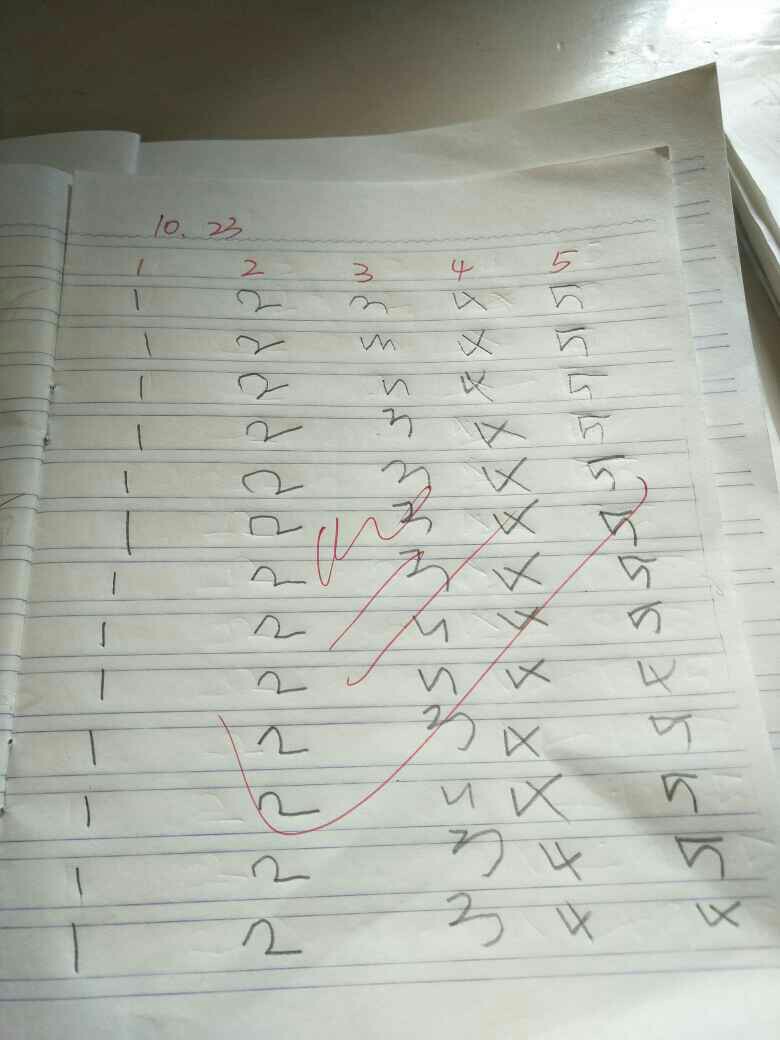 10. 23
1 2 3 4 5
1 2 3 4 5
1 2 3 4 5
1 2 5 4 5
1 2 3 4 5
1 2 3 4 5
1 2 3 4 5
1 2 3 4 5
1 2 5 4 5
1 2 5 4 4
1 2 3 4 5
1 2 5 4 5
1 2 3 4 5
1 2 3 4 4